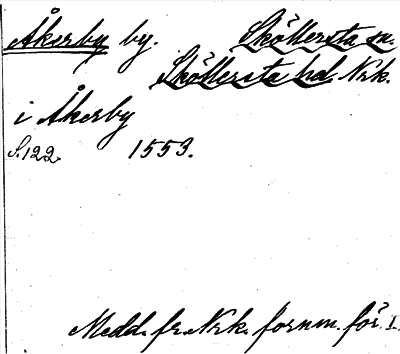 Åkerby by. Sköllersta sn.
Sköllersta hd Nrk.
i Åkerby
S. 122. 1553.
Medd. fr. Nrk. fornm. för. I.